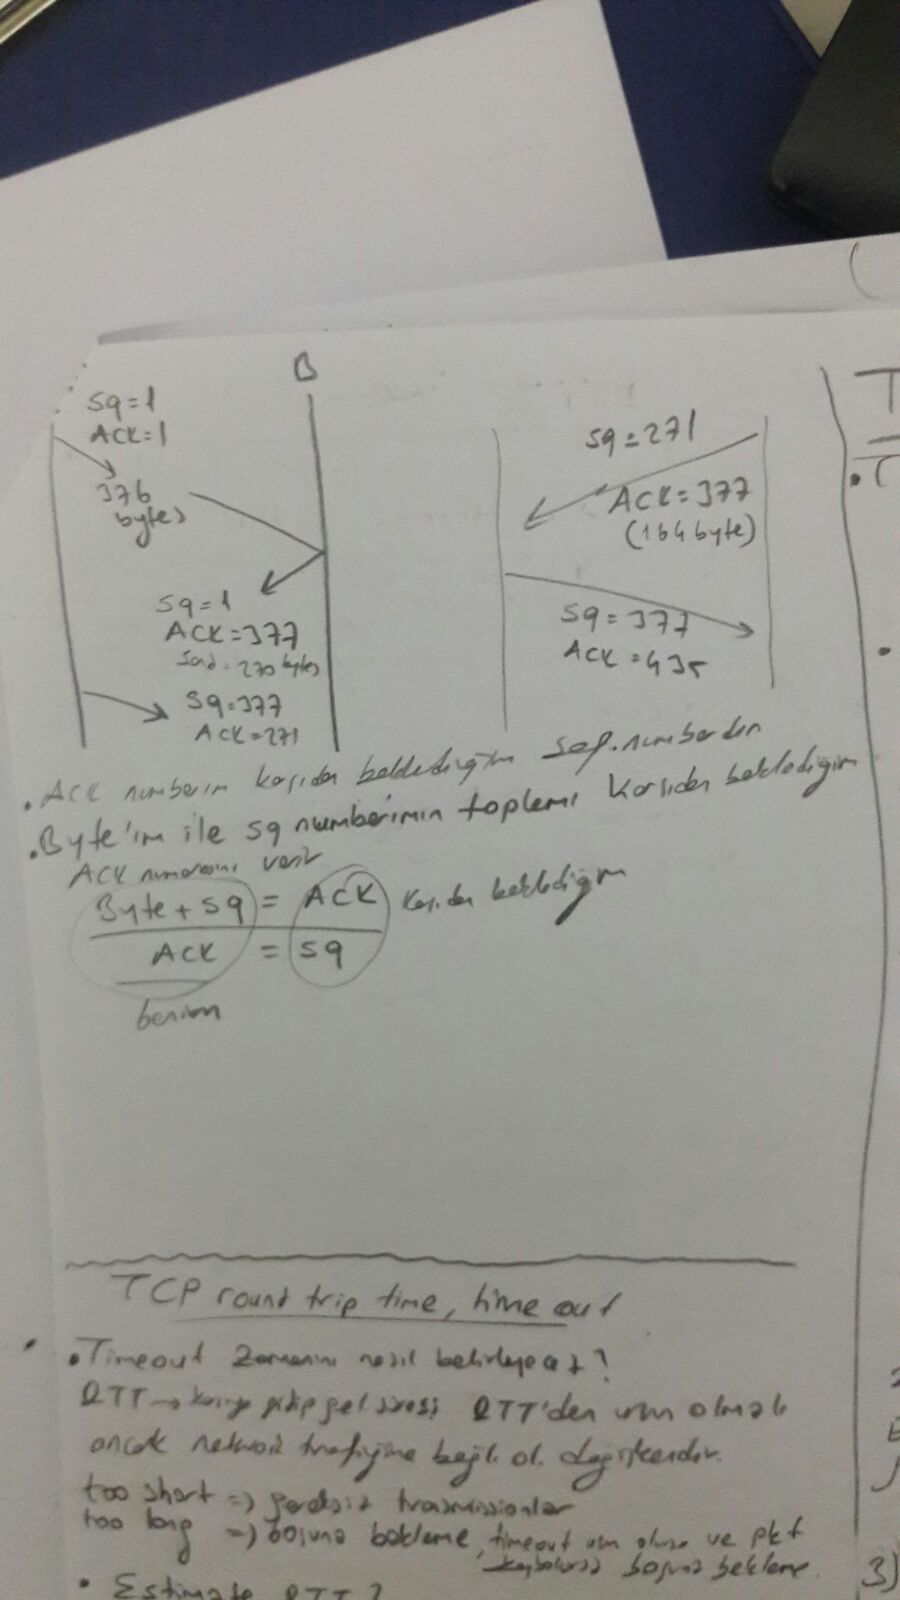 B
Sq=1
ACK=1
376
bytes
Sq=1
ACK=377
Send=270 bytes
Sq=377
ACK=271
Sq=271
ACK=377
(164 byte)
Sq=377
ACK=435
• ACK numberım karşıdan beklediğim seq. numberdır
• Byte'ım ile sq numberimin toplamı karşıdan beklediğim
ACK numarasını verir
Byte + Sq = ACK karşıdan beklediğim
ACK = Sq
benim
TCP round trip time, time out
• Timeout zamanını nasıl belirleyeceğiz?
RTT → karşıya gidip gel süresi RTT'den uzun olmalı
ancak network trafiğine bağlı ol. değişkendir.
too short => gereksiz transmissionlar
too long => boşuna bekleme, timeout uzun olursa ve pkt
kaybolursa boşuna bekleme.
• Estimate RTT?
T
• (
•
3)